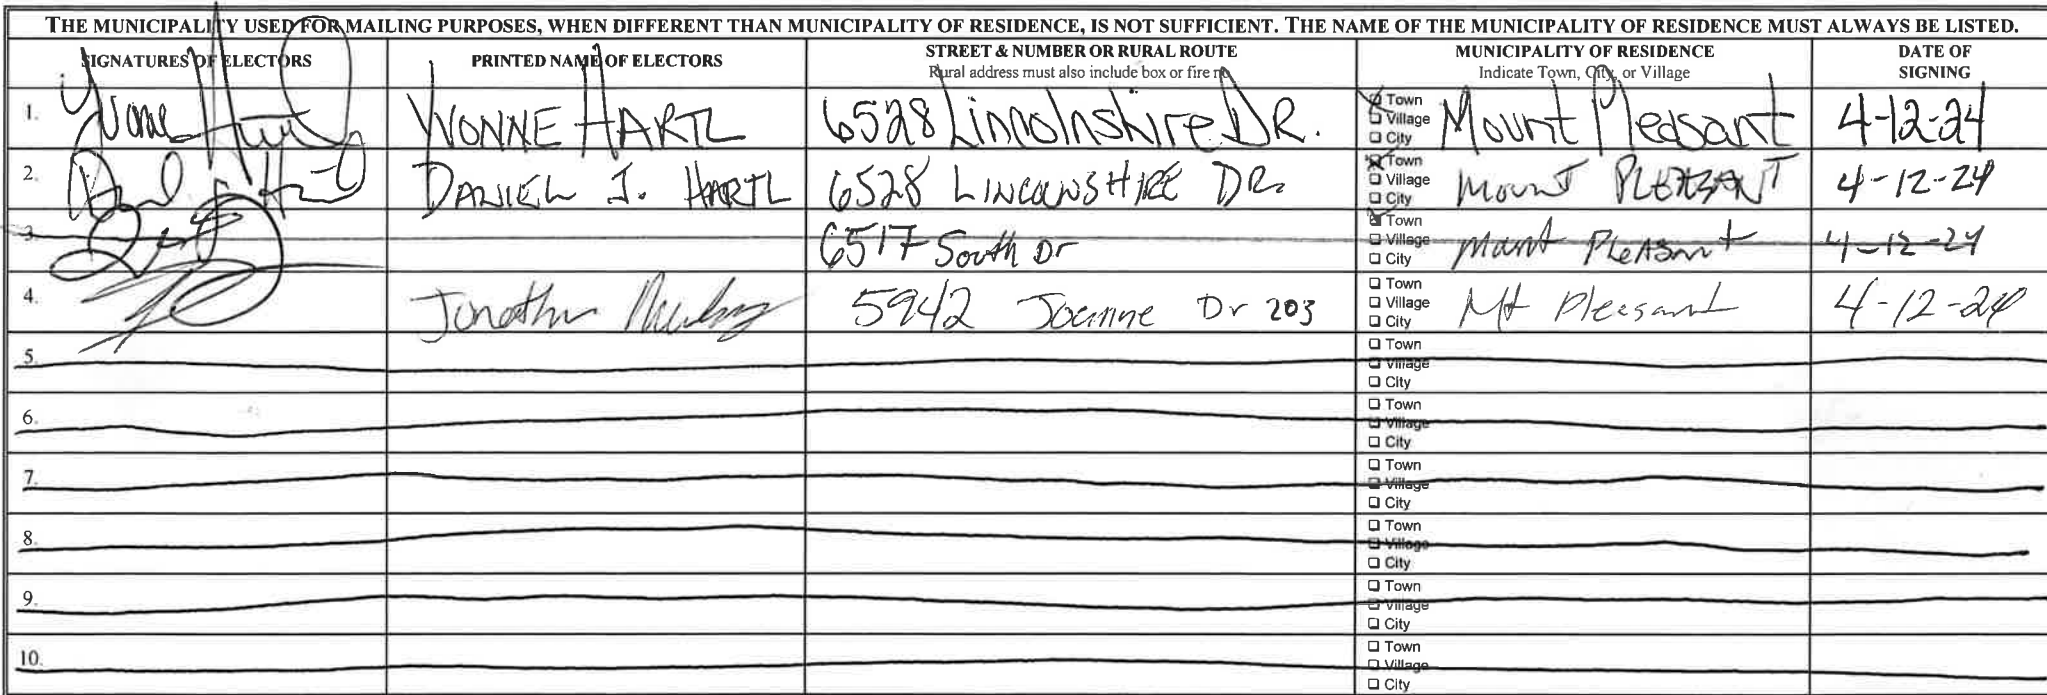 THE MUNICIPALITY USED FOR MAILING PURPOSES, WHEN DIFFERENT THAN MUNICIPALITY OF RESIDENCE, IS NOT SUFFICIENT. THE NAME OF THE MUNICIPALITY OF RESIDENCE MUST ALWAYS BE LISTED.
SIGNATURES OF ELECTORS PRINTED NAME OF ELECTORS STREET & NUMBER OR RURAL ROUTE MUNICIPALITY OF RESIDENCE DATE OF
Rural address must also include box or fire no. Indicate Town, City, or Village SIGNING
1. Yvonne Hartl YVONNE HARTL 6528 Lincolnshire DR. Town Village City Mount Pleasant 4-12-24
2. DANIEL J. HARTL 6528 LINCOLNSHIRE DR. Town Village City Mount PLEASANT 4-12-24
3. 6517 South Dr Town Village City Mount Pleasant 4-12-24
4. Jonathan 5942 Joanne Dr 203 Town Village City Mt Pleasant 4-12-24
5. Town Village City
6. Town Village City
7. Town Village City
8. Town Village City
9. Town Village City
10. Town Village City